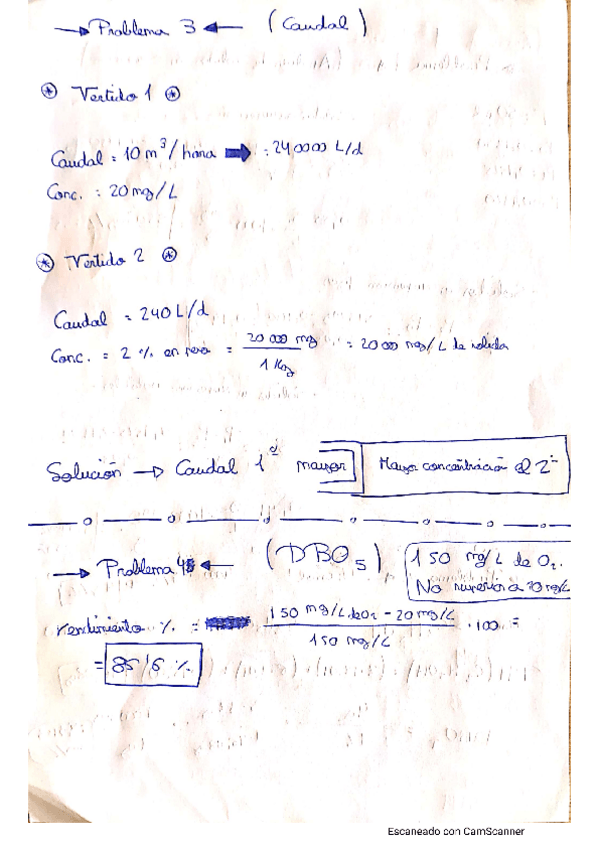 → Problema 3 ← (Caudal)
⊛ Vertido 1 ⊛
Caudal = 10 m³/hora ➡ = 240000 L/d
Conc. = 20 mg/L
⊛ Vertido 2 ⊛
Caudal = 240 L/d
Conc. = 2 % en peso = 20 000 mg / 1 Kg = 20 000 mg/L de
Solución → Caudal 1º mayor Mayor concentración el 2º
→ Problema 4 ← (DBO₅) 150 mg/L de O₂.
No superior a 20 mg/L
rendimiento % = 150 mg/L de O₂ - 20 mg/L / 150 mg/L · 100 =
= 86'6 %
Escaneado con CamScanner